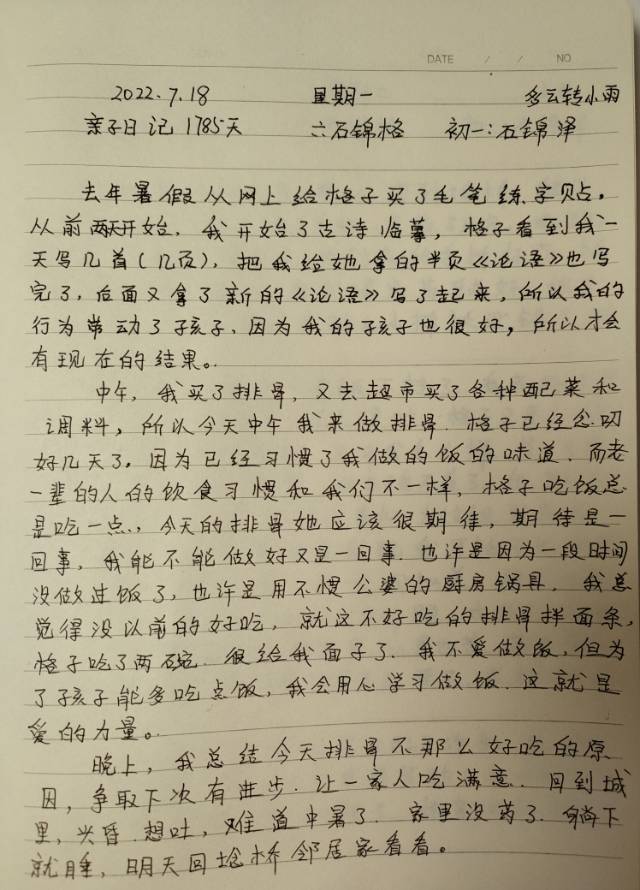 DATE / / NO
2022.7.18 星期一 多云转小雨
亲子日记 1785天 六石锦格 初一:石锦泽
去年暑假从网上给格子买了毛笔练字贴。
从前两天开始,我开始了古诗临摹,格子看到我一
天写几首(几页),把我给她拿的半页《论语》也写
完了,后面又拿了新的《论语》写了起来,所以我的
行为带动了孩子,因为我的孩子也很好,所以才会
有现在的结果。
中午,我买了排骨,又去超市买了各种配菜和
调料,所以今天中午我来做排骨.格子已经念叨
好几天了,因为已经习惯了我做的饭的味道.而老
一辈的人的饮食习惯和我们不一样,格子吃饭总
是吃一点.,今天的排骨她应该很期待,期待是一
回事,我能不能做好又是一回事.也许是因为一段时间
没做过饭了,也许是用不惯公婆的厨房锅具.我总
觉得没以前的好吃,就这不好吃的排骨拌面条,
格子吃了两碗.很给我面子了.我不爱做饭,但为
了孩子能多吃点饭,我会用心学习做饭.这就是
爱的力量。
晚上,我总结今天排骨不那么好吃的原
因,争取下次有进步.让一家人吃满意.回到城
里,头昏.想吐,难道中暑了.家里没药了.躺下
就睡,明天回埝桥邻居家看看。